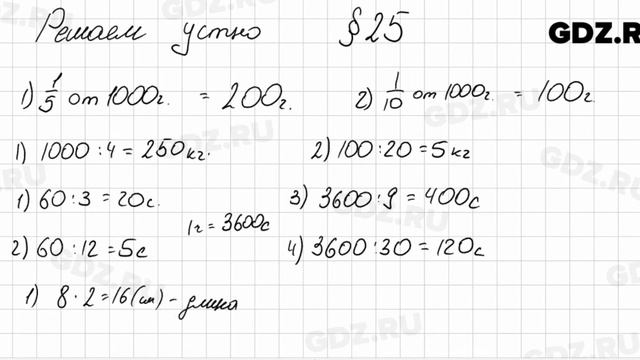 Решаем устно §25
GDZ.RU
1) 1/5 от 1000г. = 200г. 2) 1/10 от 1000г. = 100г.
1) 1000 : 4 = 250кг. 2) 100 : 20 = 5 кг
1) 60 : 3 = 20с. 3) 3600 : 9 = 400с
1г = 3600с
2) 60 : 12 = 5с 4) 3600 : 30 = 120с
1) 8 · 2 = 16 (см) - длина